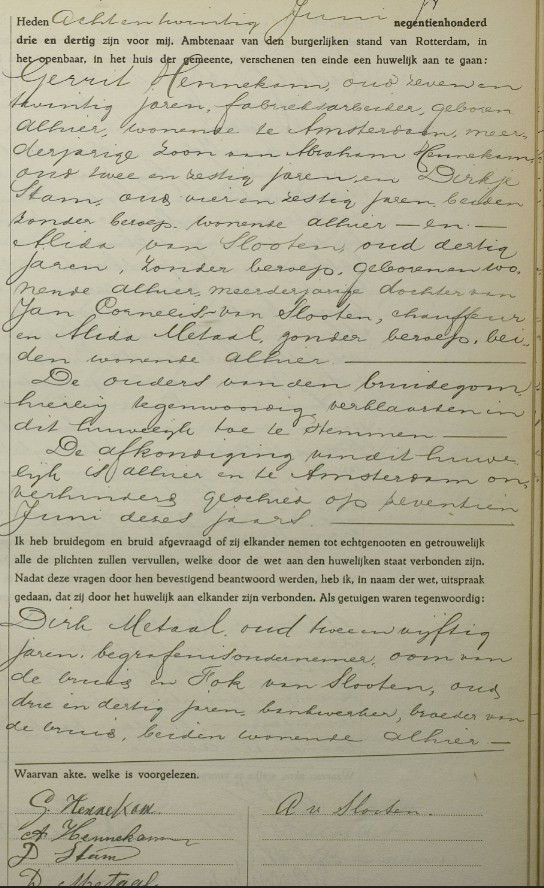 Heden Achtentwintig Juni negentienhonderd
drie en dertig zijn voor mij, Ambtenaar van den burgerlijken stand van Rotterdam, in
het openbaar, in het huis der gemeente, verschenen ten einde een huwelijk aan te gaan:
Gerrit Hennekam, oud zeven en
twintig jaren, fabrieksarbeider, geboren
alhier, wonende te Amsterdam, meer-
derjarige zoon van Abraham Hennekam,
oud twee en zestig jaren, en Dirkje
Stam, oud vier en zestig jaren, beiden
zonder beroep, wonende alhier — en —
Alida van Slooten, oud dertig
jaren, zonder beroep, geboren en wo-
nende alhier, meerderjarige dochter van
Jan Cornelis van Slooten, chauffeur
en Alida Metaal, zonder beroep, bei-
den wonende alhier. —
De ouders van den bruidegom,
hierbij tegenwoordig, verklaarden in
dit huwelijk toe te stemmen. —
De afkondiging van dit huwe-
lijk is alhier en te Amsterdam on-
verhinderd geschied op zeventien
Juni dezes jaars. —
Ik heb bruidegom en bruid afgevraagd of zij elkander nemen tot echtgenooten en getrouwelijk
alle de plichten zullen vervullen, welke door de wet aan den huwelijken staat verbonden zijn.
Nadat deze vragen door hen bevestigend beantwoord werden, heb ik, in naam der wet, uitspraak
gedaan, dat zij door het huwelijk aan elkander zijn verbonden. Als getuigen waren tegenwoordig:
Dirk Metaal, oud twee en vijftig
jaren, begrafenisondernemer, oom van
de bruid en Fok van Slooten, oud
drie en dertig jaren, bankwerker, broeder van
de bruid, beiden wonende alhier —
Waarvan akte, welke is voorgelezen.
G. Hennekam
A. v Slooten.
A Hennekam
D Stam
D. Metaal